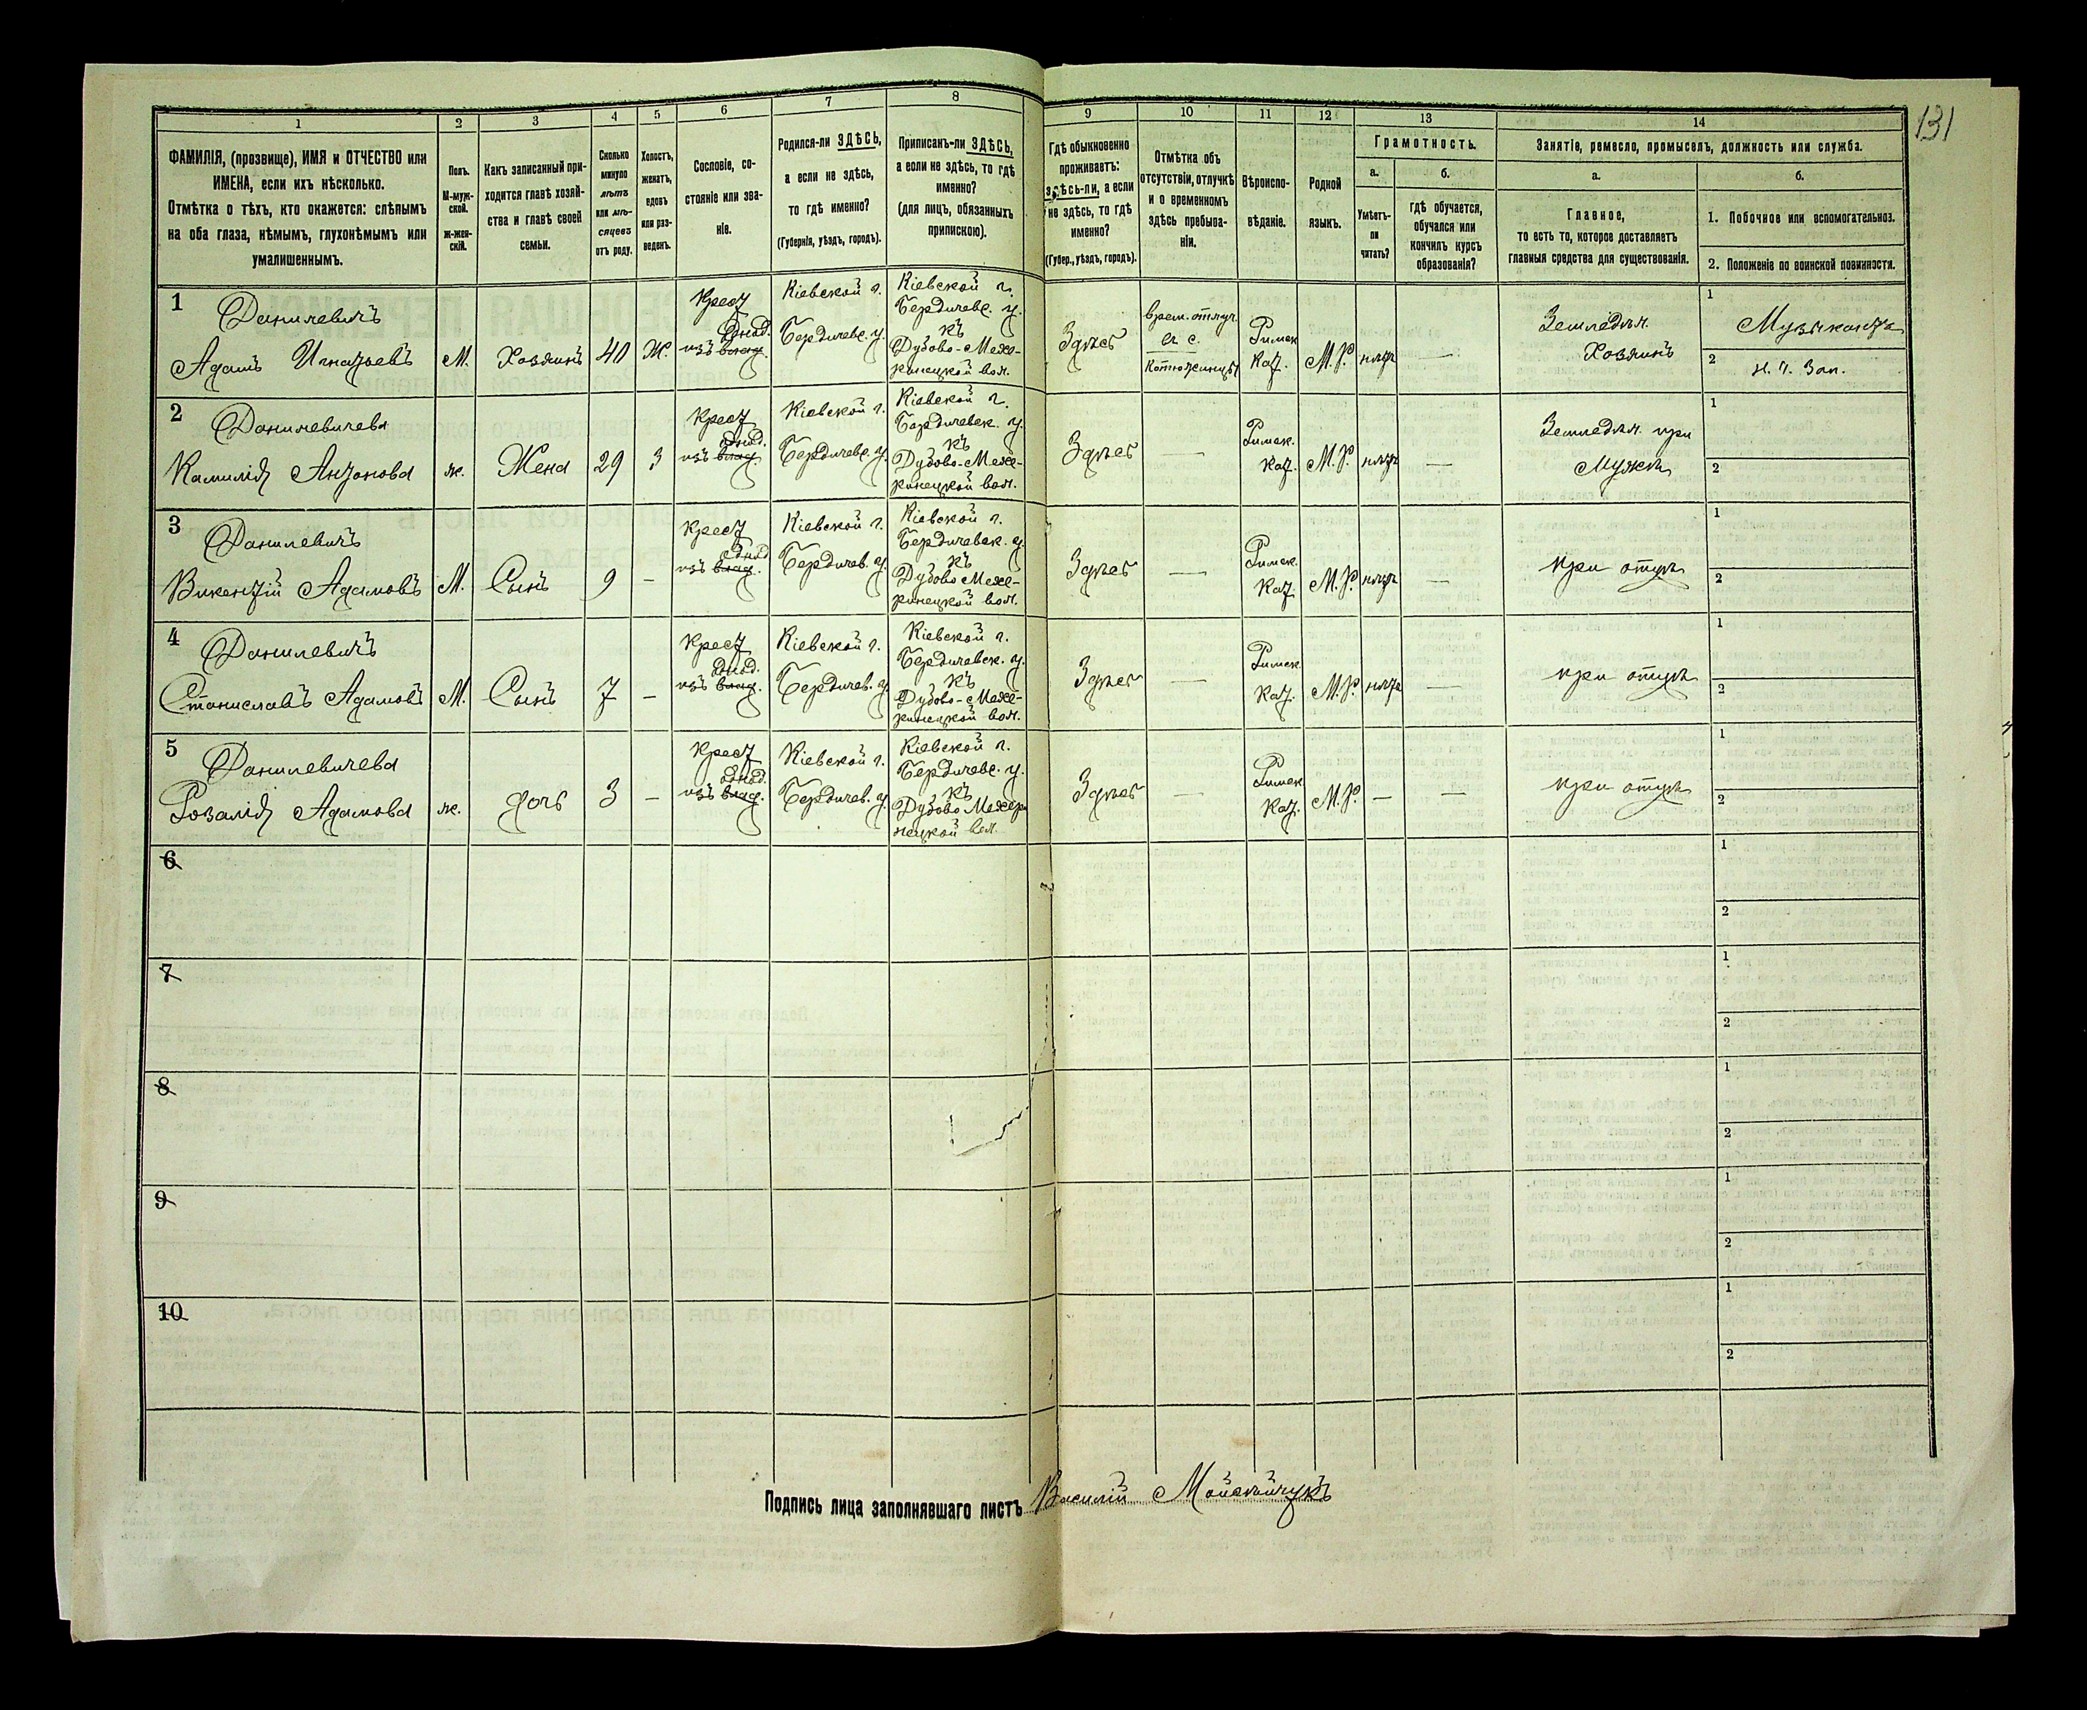 131
1
2
3
4
5
6
7
8
9
10
11
12
13
14
ФАМИЛІЯ, (прозвище), ИМЯ и ОТЧЕСТВО или
ИМЕНА, если ихъ нѣсколько.
Отмѣтка о тѣхъ, кто окажется: слѣпымъ
на оба глаза, нѣмымъ, глухонѣмымъ или
умалишеннымъ.
Полъ.
М-муж-
ской.
ж-жен-
скій.
Какъ записанный при-
ходится главѣ хозяй-
ства и главѣ своей
семьи.
Сколько
минуло
лѣтъ
или мѣ-
сяцевъ
отъ роду.
Холостъ,
женатъ,
вдовъ
или раз-
веденъ.
Сословіе, со-
стояніе или зва-
ніе.
Родился-ли ЗДѢСЬ,
а если не здѣсь,
то гдѣ именно?
(Губернія, уѣздъ, городъ).
Приписанъ-ли ЗДѢСЬ,
а если не здѣсь, то гдѣ
именно?
(для лицъ, обязанныхъ
припискою).
Гдѣ обыкновенно
проживаетъ:
здѣсь-ли, а если
не здѣсь, то гдѣ
именно?
(Губер., уѣздъ, городъ).
Отмѣтка объ
отсутствіи, отлучкѣ
и о временномъ
здѣсь пребыва-
ніи.
Вѣроиспо-
вѣданіе.
Родной
языкъ.
Грамотность.
а.
Умѣетъ-
ли
читать?
б.
гдѣ обучается,
обучался или
кончилъ курсъ
образованія?
Занятіе, ремесло, промыселъ, должность или служба.
а.
Главное,
то есть то, которое доставляетъ
главныя средства для существованія.
б.
1. Побочное или вспомогательное.
2. Положеніе по воинской повинности.
1
Данилевичъ
Адамъ Игнатьевъ
М.
Хозяинъ
40
Ж.
Крест
однод.
изъ влад.
Кіевской г.
Бердичевс. у.
Кіевской г.
Бердичевс. у.
къ
Дубово-Меже-
ринецкой вол.
Здѣсь
Врем. отлуч.
въ с.
Котюжинцы
Римск
Кат.
М.Р.
нѣтъ
—
Земледѣл.
Хозяинъ
1
Музыканта
2
н. ч. Зап.
2
Данилевичева
Камилія Антонова
ж.
Жена
29
З
Крест
однод.
изъ влад.
Кіевской г.
Бердичевс. у.
Кіевской г.
Бердичевск. у.
къ
Дубово-Меже-
ринецкой вол.
Здѣсь
—
Римск.
Кат.
М.Р.
нѣтъ
—
Земледѣл. при
Мужѣ
1
2
3
Данилевичъ
Викентій Адамовъ
М.
Сынъ
9
—
Крест
однод
изъ влад.
Кіевской г.
Бердичев. у.
Кіевской г.
Бердичевск. у.
къ
Дубово Меже-
ринецкой вол.
Здѣсь
—
Римск.
Кат.
М.Р.
нѣтъ
—
при отцѣ
1
2
4
Данилевичъ
Станиславъ Адамовъ
М.
Сынъ
7
—
Крест
однод.
изъ влад.
Кіевской г.
Бердичев. у.
Кіевской г.
Бердичевск. у.
къ
Дубово-Меже-
ринецкой вол.
Здѣсь
—
Римск.
Кат.
М.Р.
нѣтъ
—
при отцѣ
1
2
5
Данилевичева
Розалія Адамова
ж.
дочь
3
—
Крест
однод.
изъ влад.
Кіевской г.
Бердичев. у.
Кіевской г.
Бердичевс. у.
къ
Дубово-Межери
нецкой вол.
Здѣсь
—
Римск
Кат.
М.Р.
—
—
при отцѣ
1
2
6
1
2
7
1
2
8
1
2
9
1
2
10
1
2
Подпись лица заполнявшаго листъ Василій